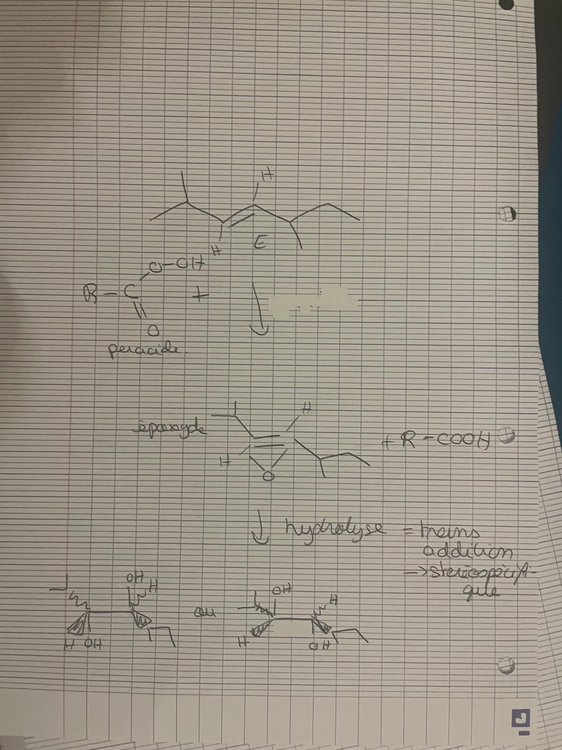 H
H
E
O-OH
R-C
+
O
peracide.
époxyde
H
H
O
+ R-COOH
hydrolyse = trans
addition
→ stéréospécifi-
que
OH
H
H
OH
ou
OH
H
H
OH